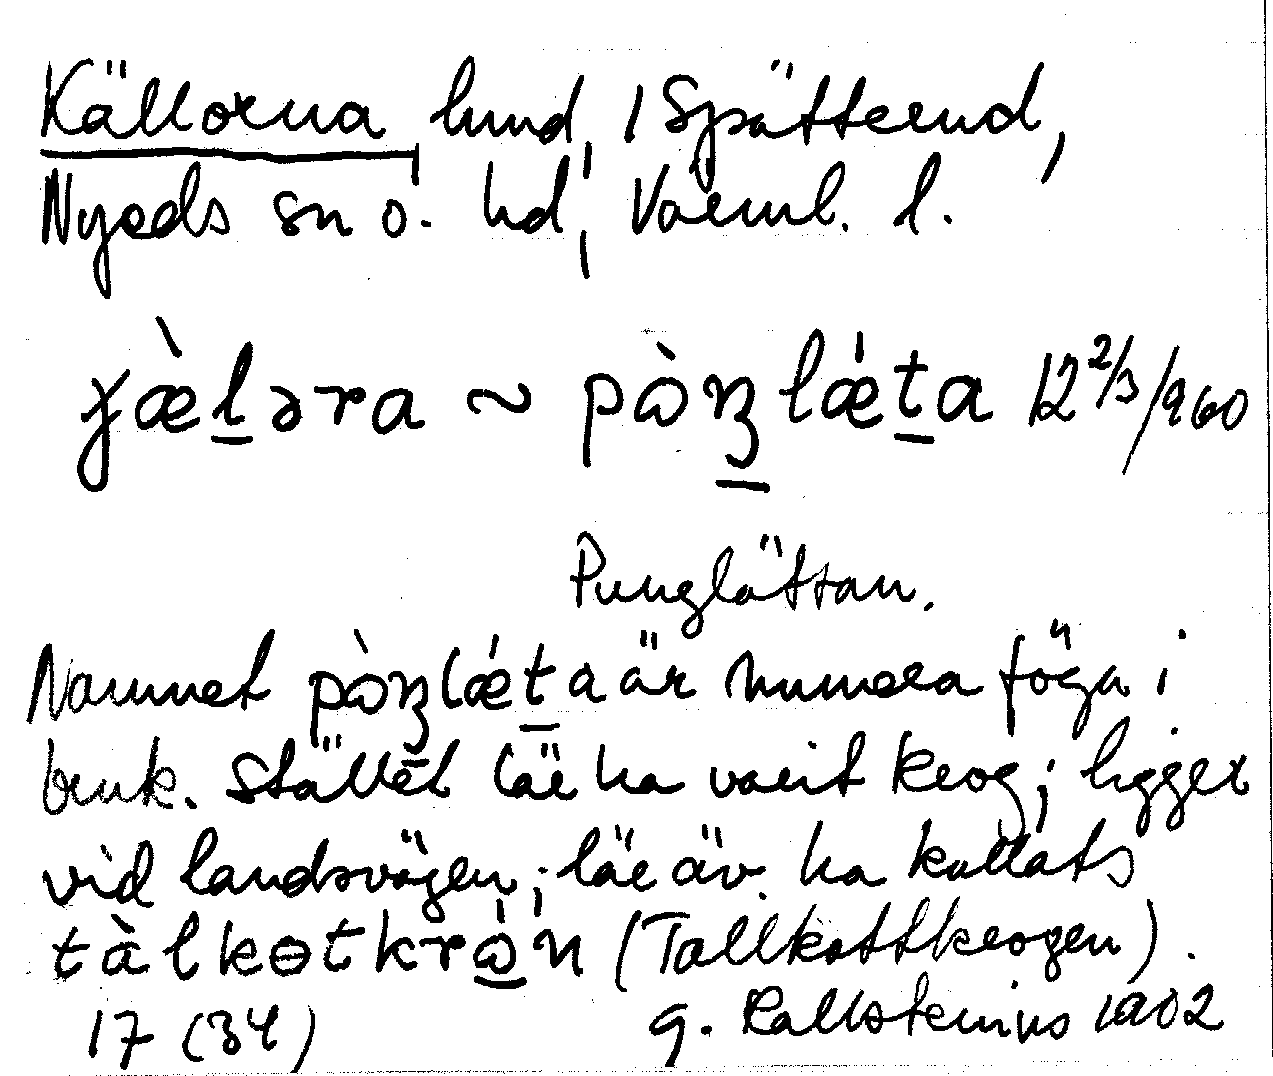 Källorna, hmd, 1 Spätterud,
Nyeds sn o. hd, Värml. l.
j̀æ̀l̲əra ~ pòŋ̲lǽt̲a 12 2/3/960
Punglättan.
Namnet pòŋ̲lǽt̲a är numera föga i
bruk. Stället lär ha varit krog; ligger
vid landsvägen; lär äv. ha kallats
tàlkɵtkrò̲n (Tallkottkrogen).
17 (34) G. Kallstenius 1902